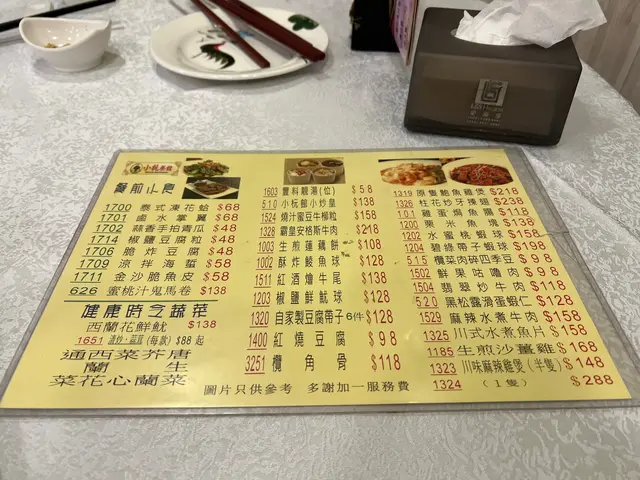 小杬菜館
餐前小食
1700 泰式凍花蛤 $68
1701 鹵水掌翼 $68
1702 蒜香手拍青瓜 $48
1714 椒鹽豆腐粒 $48
1706 脆炸豆腐 $48
1709 涼拌海蜇 $58
1711 金沙脆魚皮 $58
626 蜜桃汁鬼馬卷 $138
健康時令蔬菜
西蘭花鮮魷 $138
1651 (每款) $88 起
通西通菜芥唐
蘭 生
菜花心蘭菜
1503 豐料靚湯(位) $58
510 小杬館小炒皇 $138
1524 燒汁蜜豆牛柳粒 $158
1328 霸皇安格斯牛肉 $218
1003 生煎蓮藕餅 $108
1002 酥炸鯪魚球 $128
1511 紅酒燴牛尾 $138
1203 椒鹽鮮魷球 $128
1320 自家製豆腐帶子6件 $128
1400 紅燒豆腐 $98
3251 欖角骨 $118
圖片只供參考 多謝加一服務費
1319 原隻鮑魚雞煲 $218
1326 桂花炒牙揀翅 $238
101 雞蛋焗魚腸 $118
1200 粟米魚塊 $138
1202 水蜜桃蝦球 $158
1204 碧綠帶子蝦球 $198
515 欖菜肉碎四季豆 $98
1502 鮮果咕嚕肉 $98
1504 翡翠炒牛肉 $118
520 黑松露滑蛋蝦仁 $128
1529 麻辣水煮牛肉 $158
1325 川式水煮魚片 $158
1185 生煎沙薑雞 $168
1323 川味麻辣雞煲(半隻) $148
1324 (1隻) $288